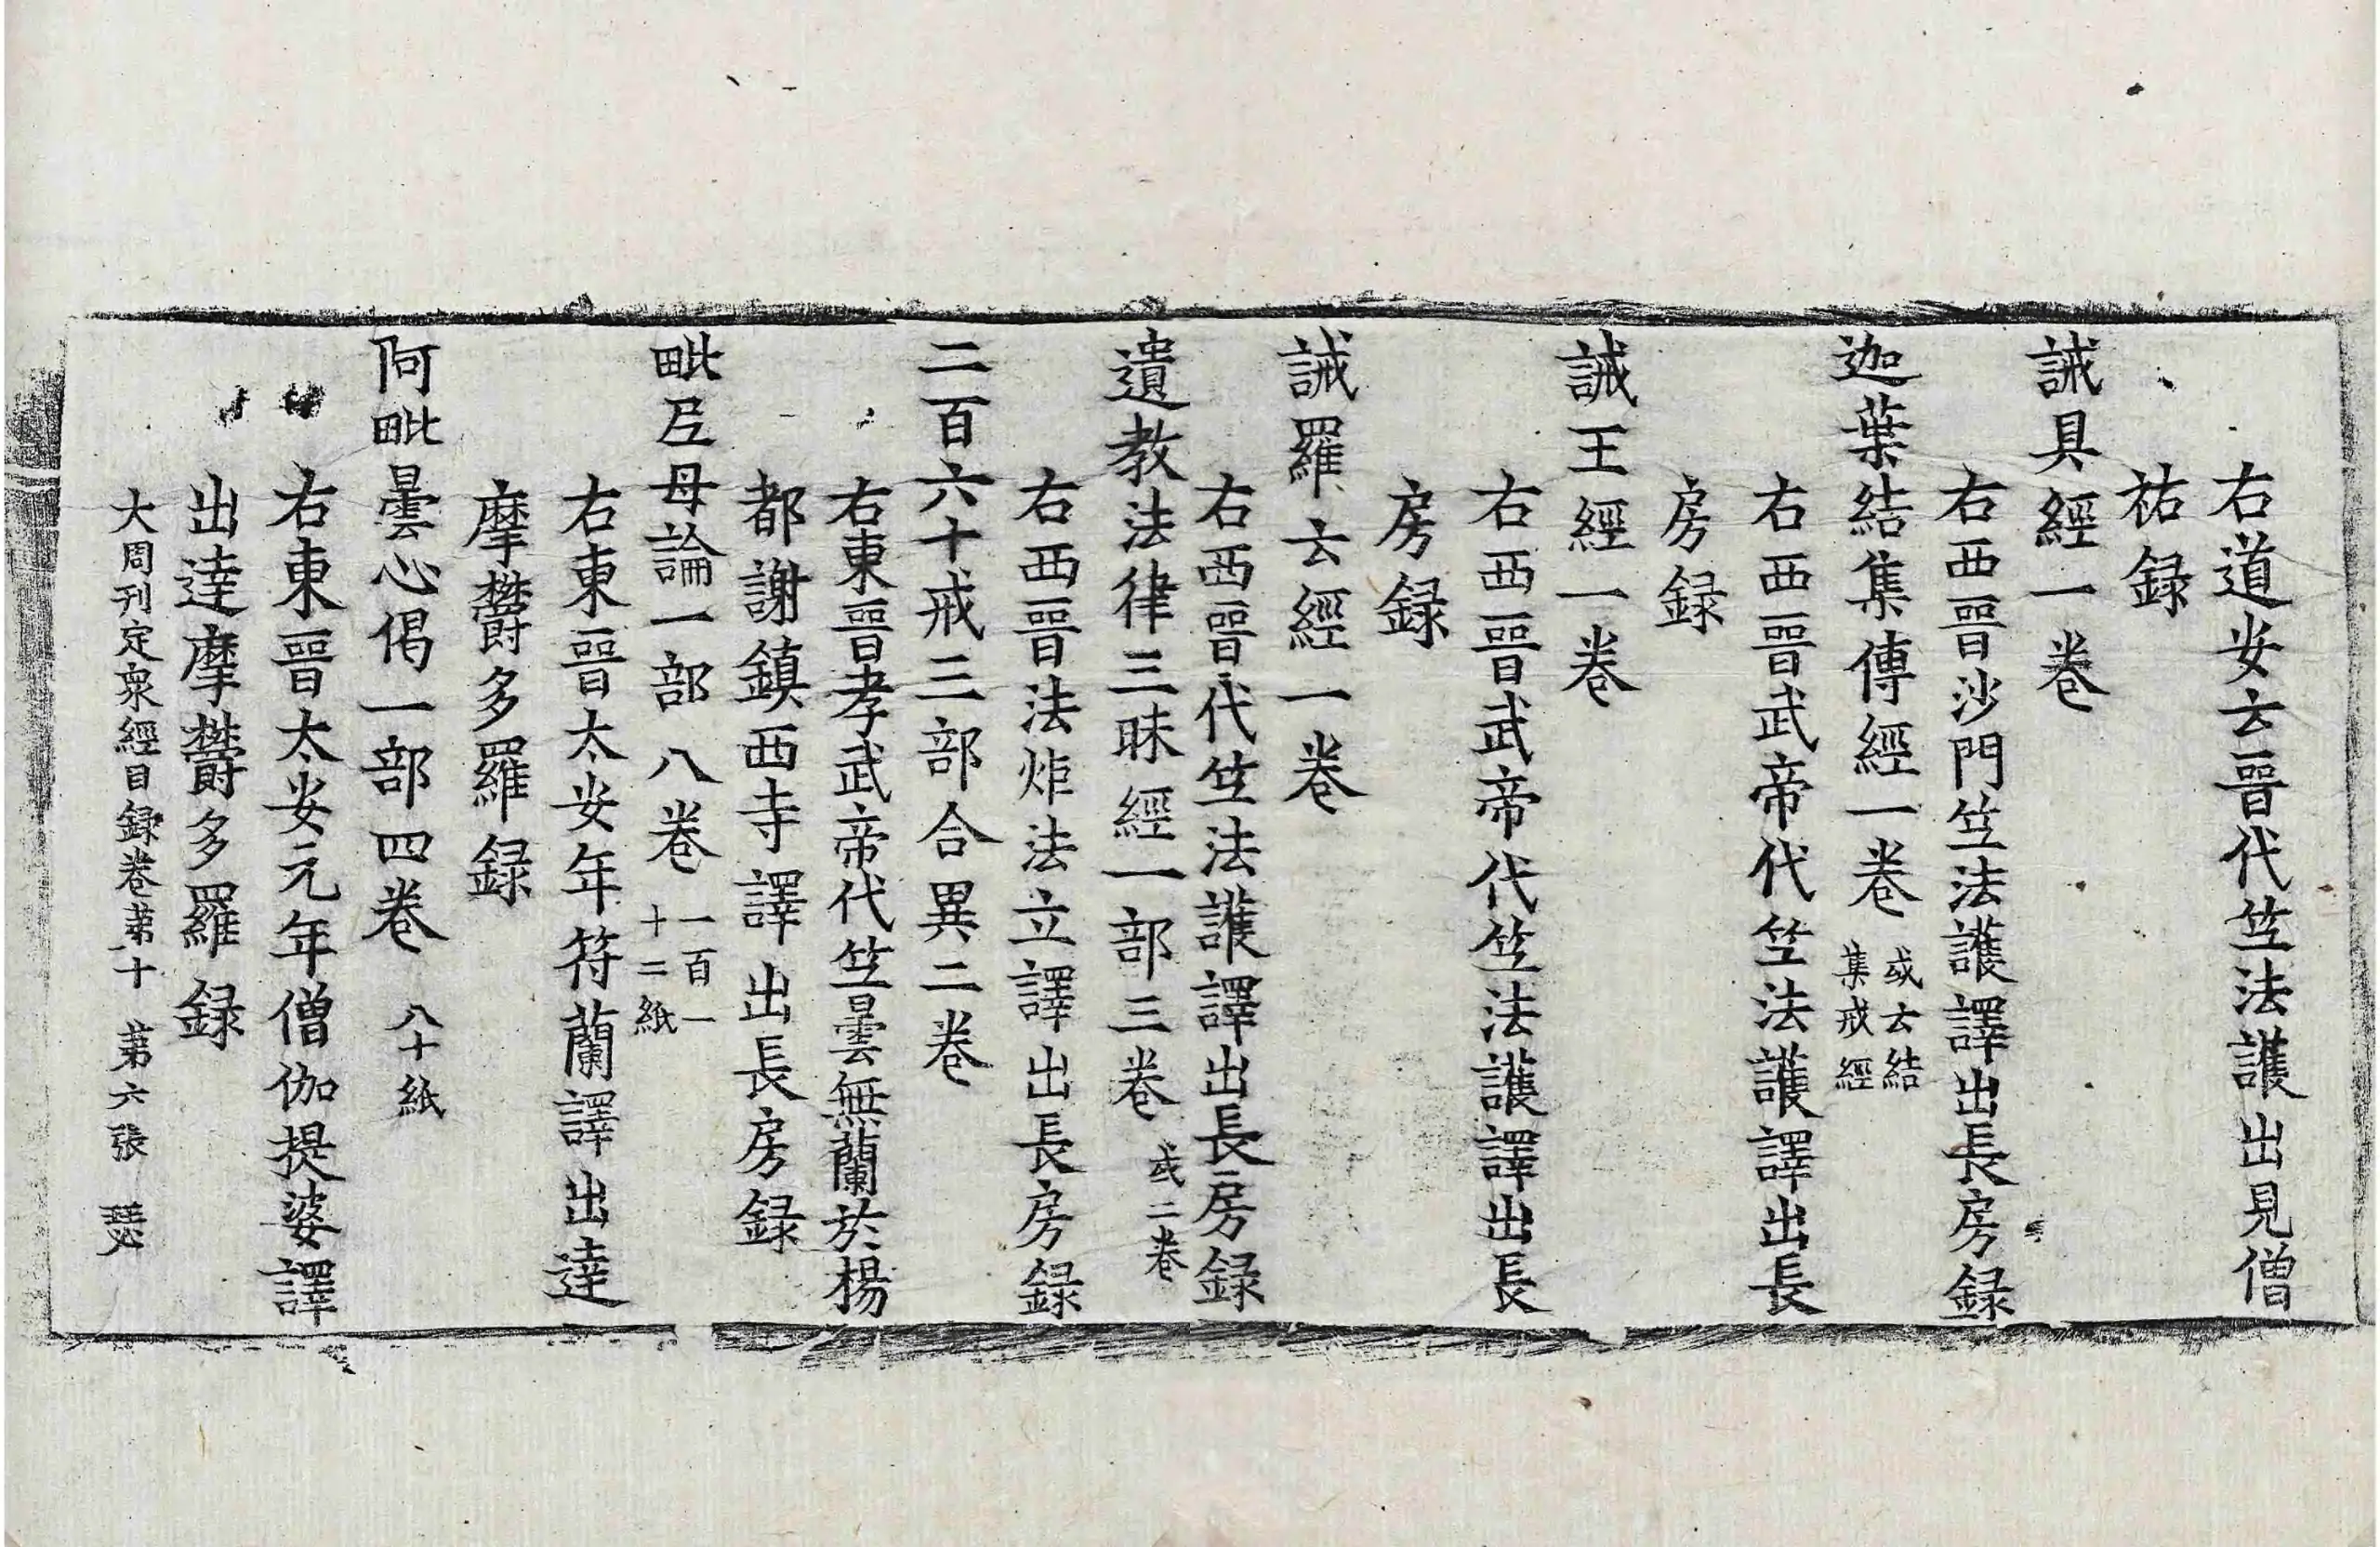 右道安云晉代笁法護出見僧
祐録
誡具經一卷
右西晉沙門笁法護譯出長房録
迦葉結集傳經一卷 或云結集戒經
右西晉武帝代笁法護譯出長
房録
誡王經一卷
右西晉武帝代笁法護譯出長
房録
誡羅云經一卷
右西晉代笁法護譯出長房録
遺教法律三昧經一部三卷 或二卷
右西晉法炬法立譯出長房録
二百六十戒三部合異二卷
右東晉孝武帝代笁曇無蘭於楊
都謝鎮西寺譯出長房録
毗尼母論一部八卷 一百一十二紙
右東晉太安年符蘭譯出達
摩欝多羅録
阿毗曇心偈一部四卷 八十紙
右東晉太安元年僧伽提婆譯
出達摩欝多羅録
大周刊定衆經目録卷苐十 苐六張 瑟